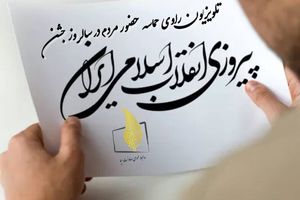 تلویزیون راوی حماسه حضور مردم در سالروز جشن
پیروزی انقلاب اسلامی ایران